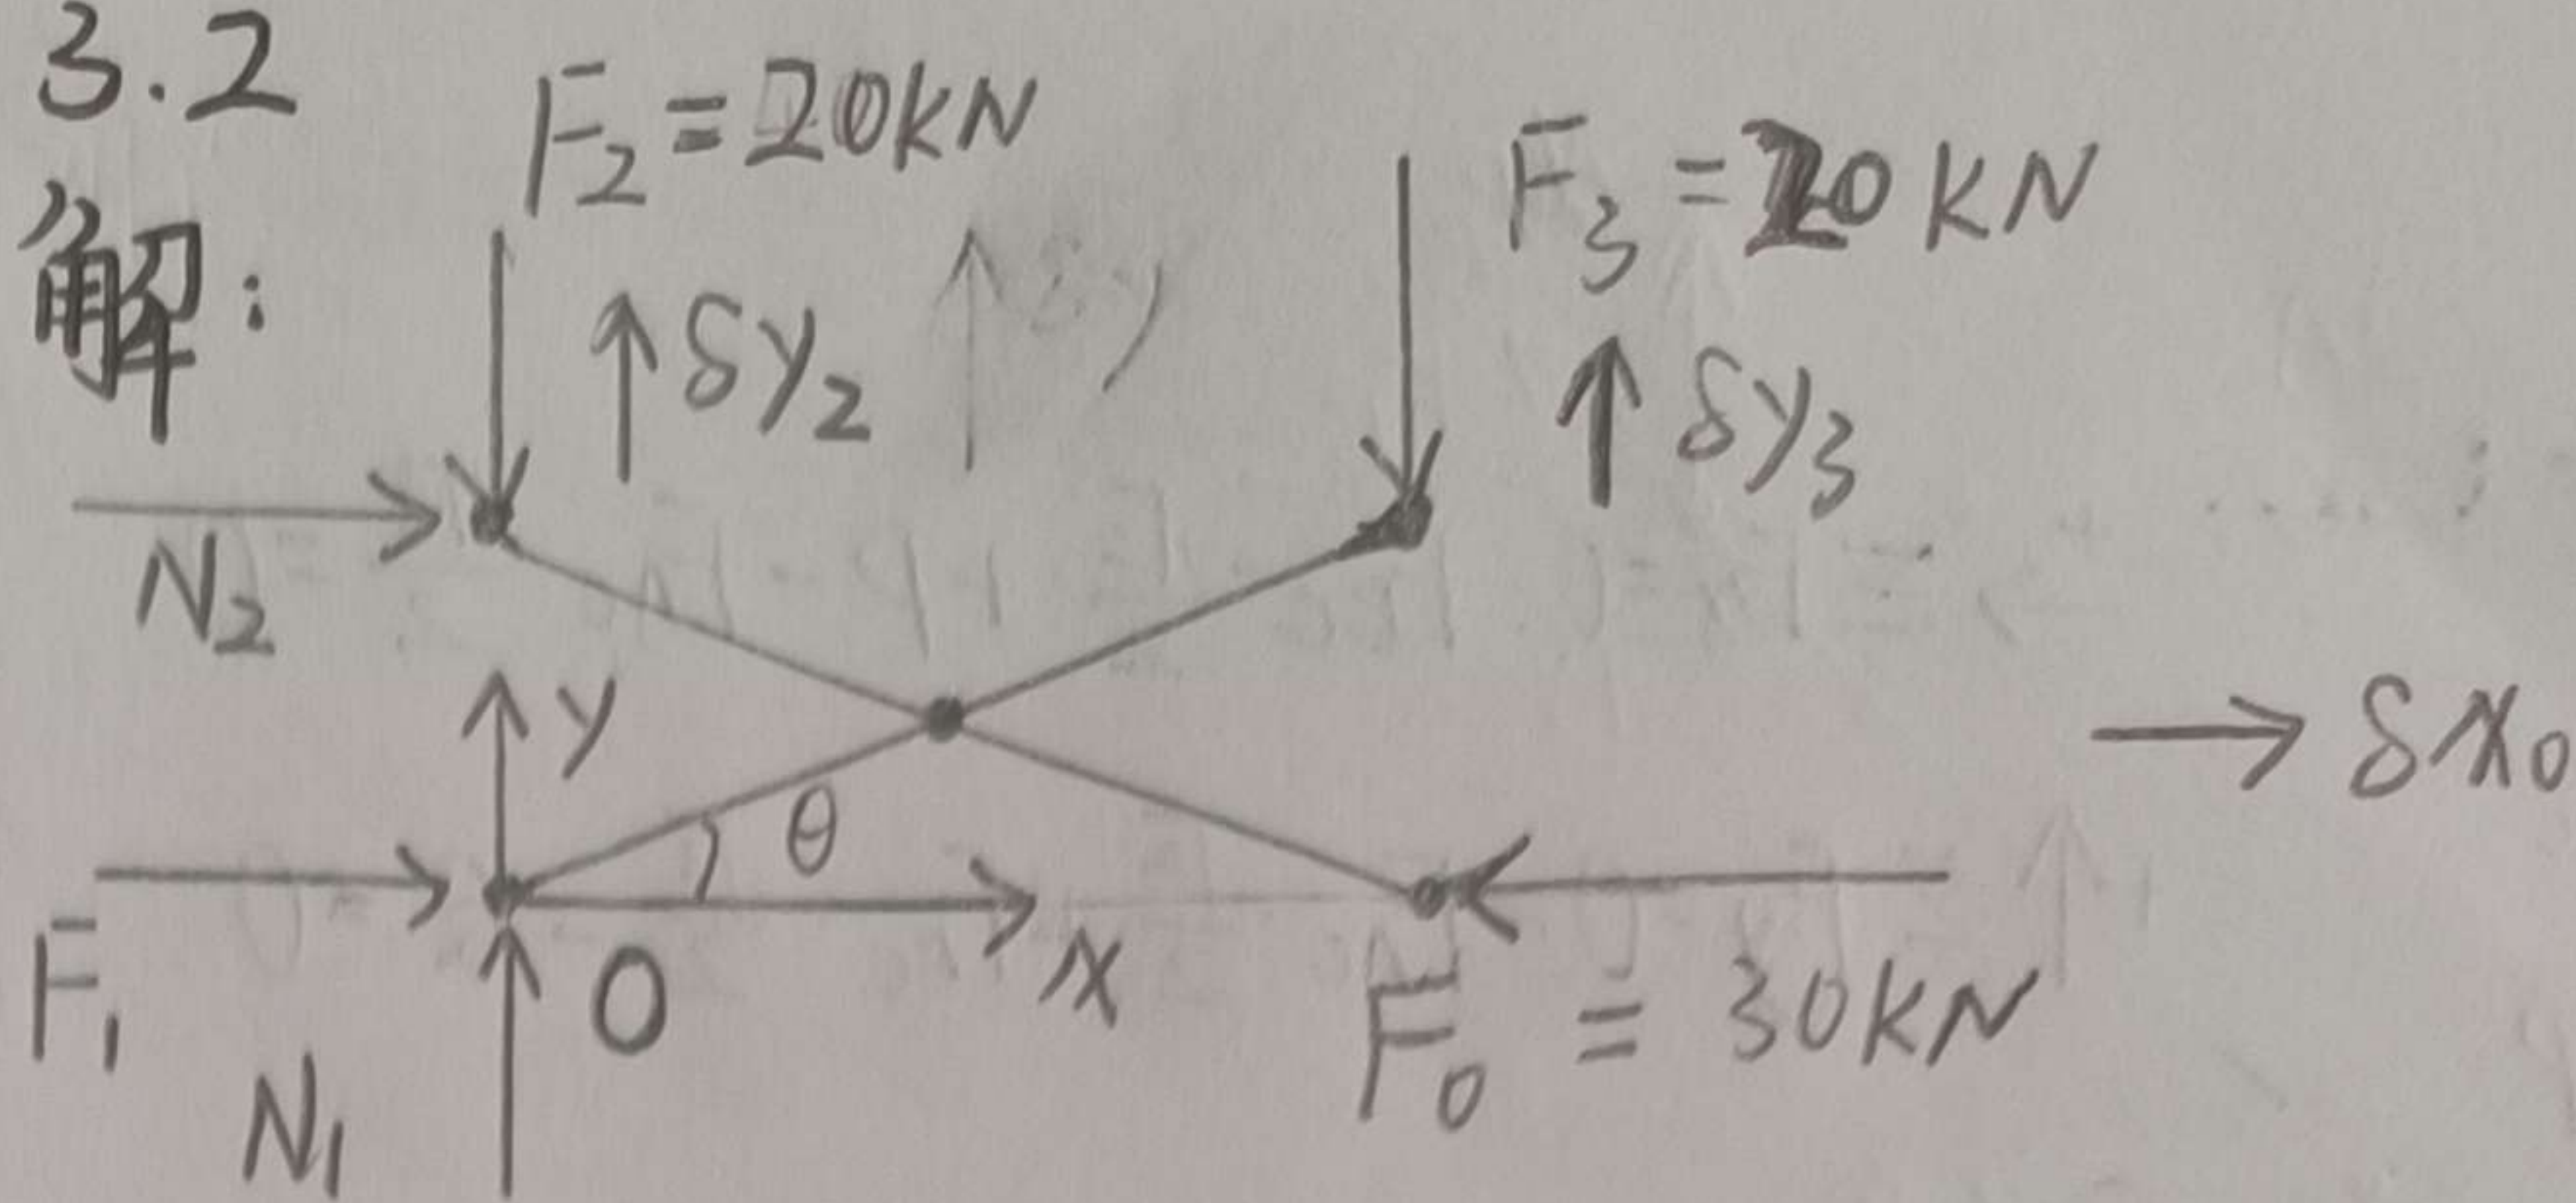 3.2
解:
F₂ = 20kN
F₃ = 20kN
δy₂
δy
δy₃
N₂
y
θ
δx₀
F₁
O
x
F₀ = 30kN
N₁